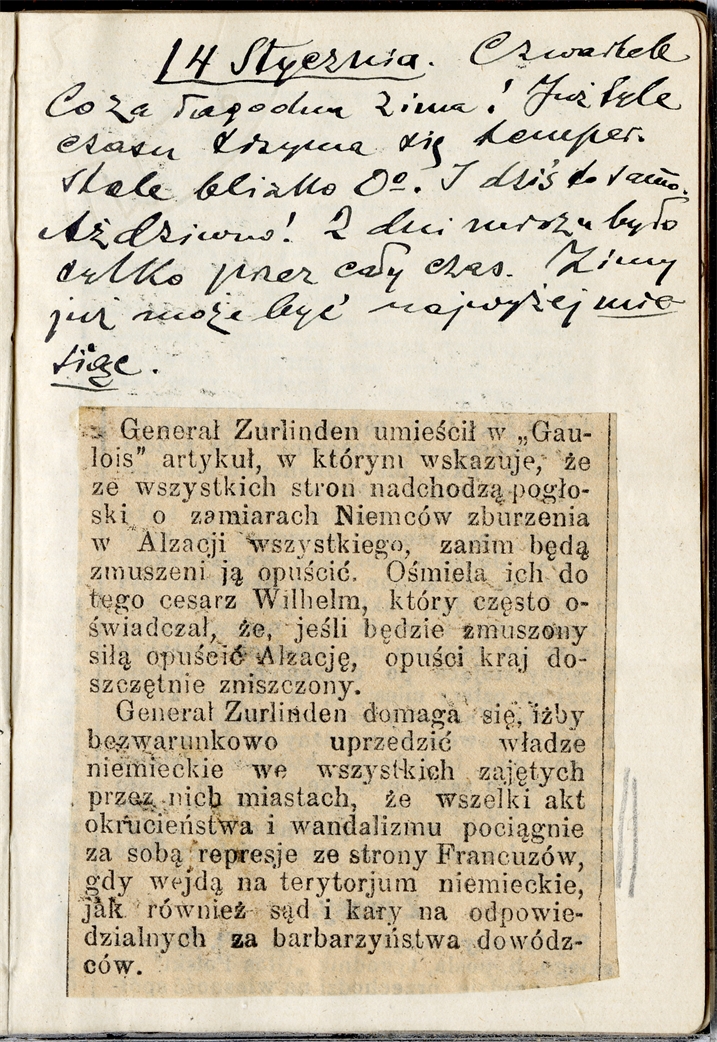 14 Stycznia. Czwartek
Co za łagodna zima! Już tyle
czasu trzyma się temper.
stale blizko 0º. I dziś to samo.
Aż dziwno! 2 dni mrozu było
tylko przez cały czas. Zimy
już może być najwyżej mie-
siąc.
General Zurlinden umieścił w „Gau-
lois” artykuł, w którym wskazuje, że
ze wszystkich stron nadchodzą pogło-
ski o zamiarach Niemców zburzenia
w Alzacji wszystkiego, zanim będą
zmuszeni ją opuścić. Ośmiela ich do
tego cesarz Wilhelm, który często o-
świadczał, że, jeśli będzie zmuszony
siłą opuścić Alzację, opuści kraj do-
szczętnie zniszczony.
Generał Zurlinden domaga się, iżby
bezwarunkowo uprzedzić władze
niemieckie we wszystkich zajętych
przez nich miastach, że wszelki akt
okrucieństwa i wandalizmu pociągnie
za sobą represje ze strony Francuzów,
gdy wejdą na terytorjum niemieckie,
jak również sąd i kary na odpowie-
dzialnych za barbarzyństwa dowódz-
ców.